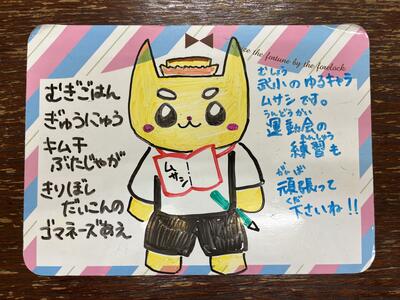 see the fortune by the forelock
むぎごはん
ぎゅうにゅう
キムチ
ぶたじゃが
きりぼし
だいこんの
ゴマネーズあえ
ムサシ
むしょう
武小のゆるキャラ
ムサシです。
うんどうかい
運動会の
れんしゅう
練習も
がんば
頑張って
くだ
下さいね!!